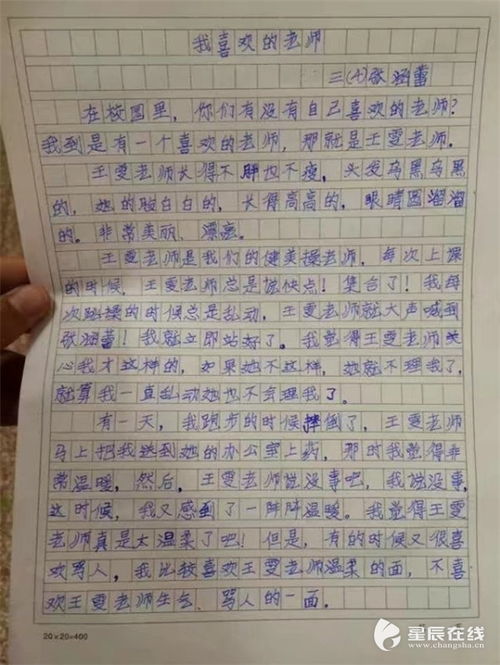 我喜欢的老师
三(4)张涵蕾
在校园里，你们有没有自己喜欢的老师？
我到是有一个喜欢的老师，那就是王雯老师。
王雯老师长得不胖也不瘦，头发乌黑乌黑
的，她的脸白白的，长得高高的，眼睛圆溜溜
的。非常美丽、漂亮。
王雯老师是我们的健美操老师，每次上课
的时候，王雯老师总是说快点！集合了！我每
次跳操的时候总是乱动，王雯老师就大声喊到
张涵蕾！我就立即站好了。我觉得王雯老师关
心我才这样的，如果她不这样，她就不理我了，
就算我一直乱动她也不会理我了。
有一天，我跑步的时候摔倒了，王雯老师
马上把我送到她的办公室上药，那时我觉得非
常温暖，然后，王雯老师说没事吧，我说没事，
这时候，我又感到了一阵阵温暖。我觉得王雯
老师真是太温柔了吧！但是，有的时候又很喜
欢骂人，我比较喜欢王雯老师温柔的面，不喜
欢王雯老师生气、骂人的一面。
20×20=400
星辰在线
www.changsha.cn